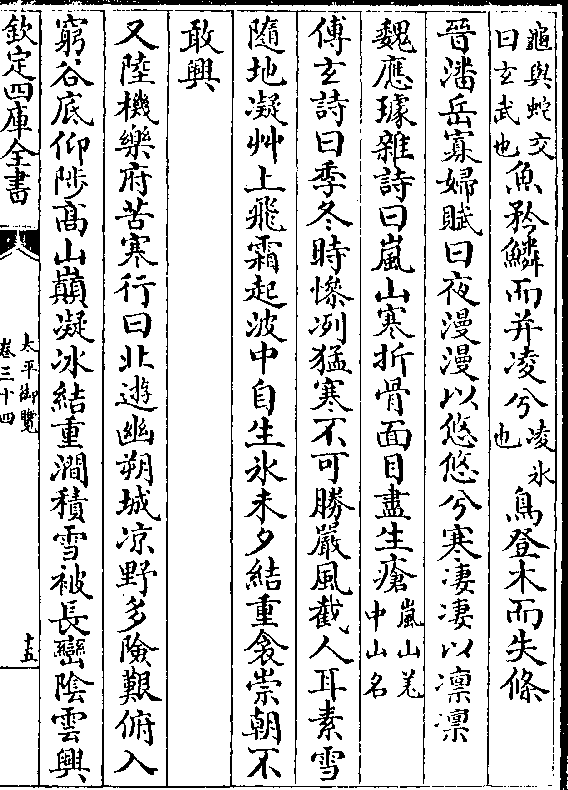 龜與蛇交曰玄武也魚矜鱗而并凌兮凌氷也鳥登木而失條
晉潘岳寡婦賦曰夜漫漫以悠悠兮寒淒淒以凛凛
魏應璩雜詩曰嵐山寒折骨面目盡生瘡嵐山羌中山名
傅玄詩曰季冬時慘冽猛寒不可勝嚴風截人耳素雪
隨地凝艸上飛霜起波中自生氷未夕結重衾崇朝不
敢興
又陸機樂府苦寒行曰北遊幽朔城凉野多險艱俯入
窮谷底仰陟髙山巔凝冰結重澗積雪被長巒陰雲興
欽定四庫全書
太平御覽
卷三十四
十五